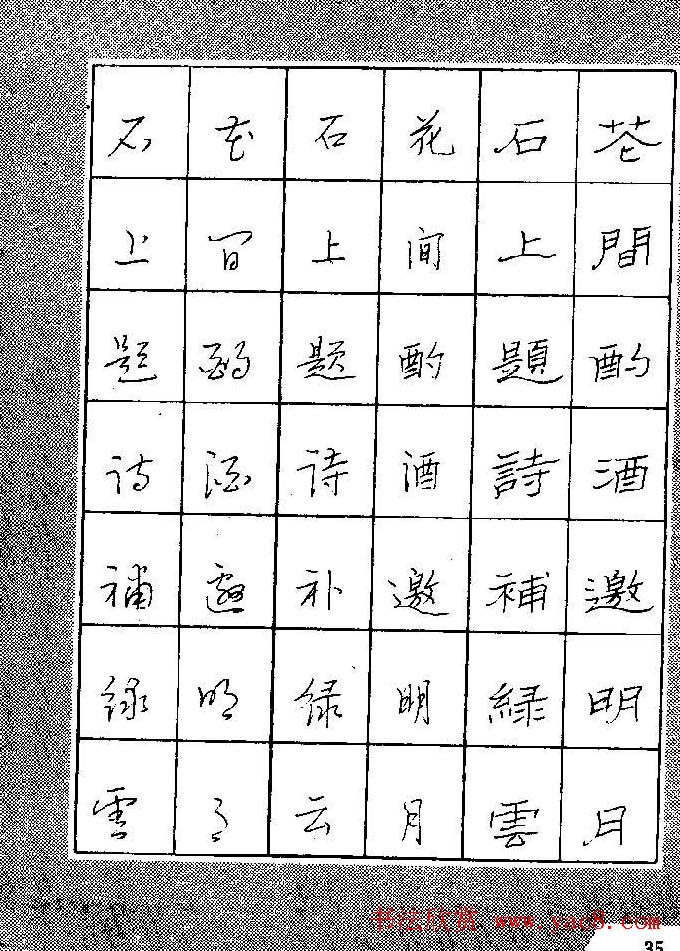 花間酌酒邀明月
石上題詩補緑雲
花间酌酒邀明月
石上题诗补绿云
花间酌酒邀明月
石上题诗補绿雲
书法欣赏 www.yac8.com
35